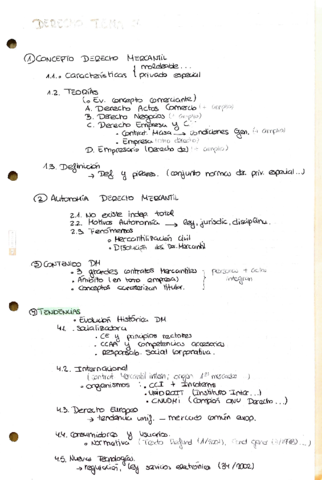 DERECHO TEMA
① CONCEPTO DERECHO MERCANTIL
1.1. Características { moldeable...
privado especial
1.2. TEORÍAS
(o Ev. concepto comerciante)
A. Derecho Actos Comercio (- amplio)
B. Derecho Negocios (+ amplio)
C. Derecho Empresa y C
• Contrat. Masa → condiciones Gen. (+ amplio)
• Empresa
D. Empresario (Derecho de) (- amplio)
1.3. Definición
→ Def y pilares. (conjunto normas de priv. especial...)
② Autonomía DERECHO MERCANTIL
2.1. No existe indep total
2.2. Motivos Autonomía → ley, jurisdic, disciplin...
2.3. Fenómenos
• Mercantilización Civil
• Disolución del D. Mercantil
③ CONTENIDO DM
• 3 grandes contratos Mercantiles
• Ámbito (en torno empresa)
• Conceptos caracterizan titular.
personas + actos
integran
④ TENDENCIAS
• Evolución Histórica DM
4.1. Socializadora
• CE y principios rectores
• CCAA y competencias accesorias
• Responsab. Social Corporativa.
4.2. Internacional
• organismos • CCI + Incoterms
UNIDROIT (Instituto Inter...)
• CNUDMI
4.3. Derecho Europeo
→ tendencia unif. — mercado común europ.
4.4. Consumidores y Usuarios.
• Normativa
4.5. Nuevas Tecnologías.
→ regulación, ley servicios electrónicos (34/2002)